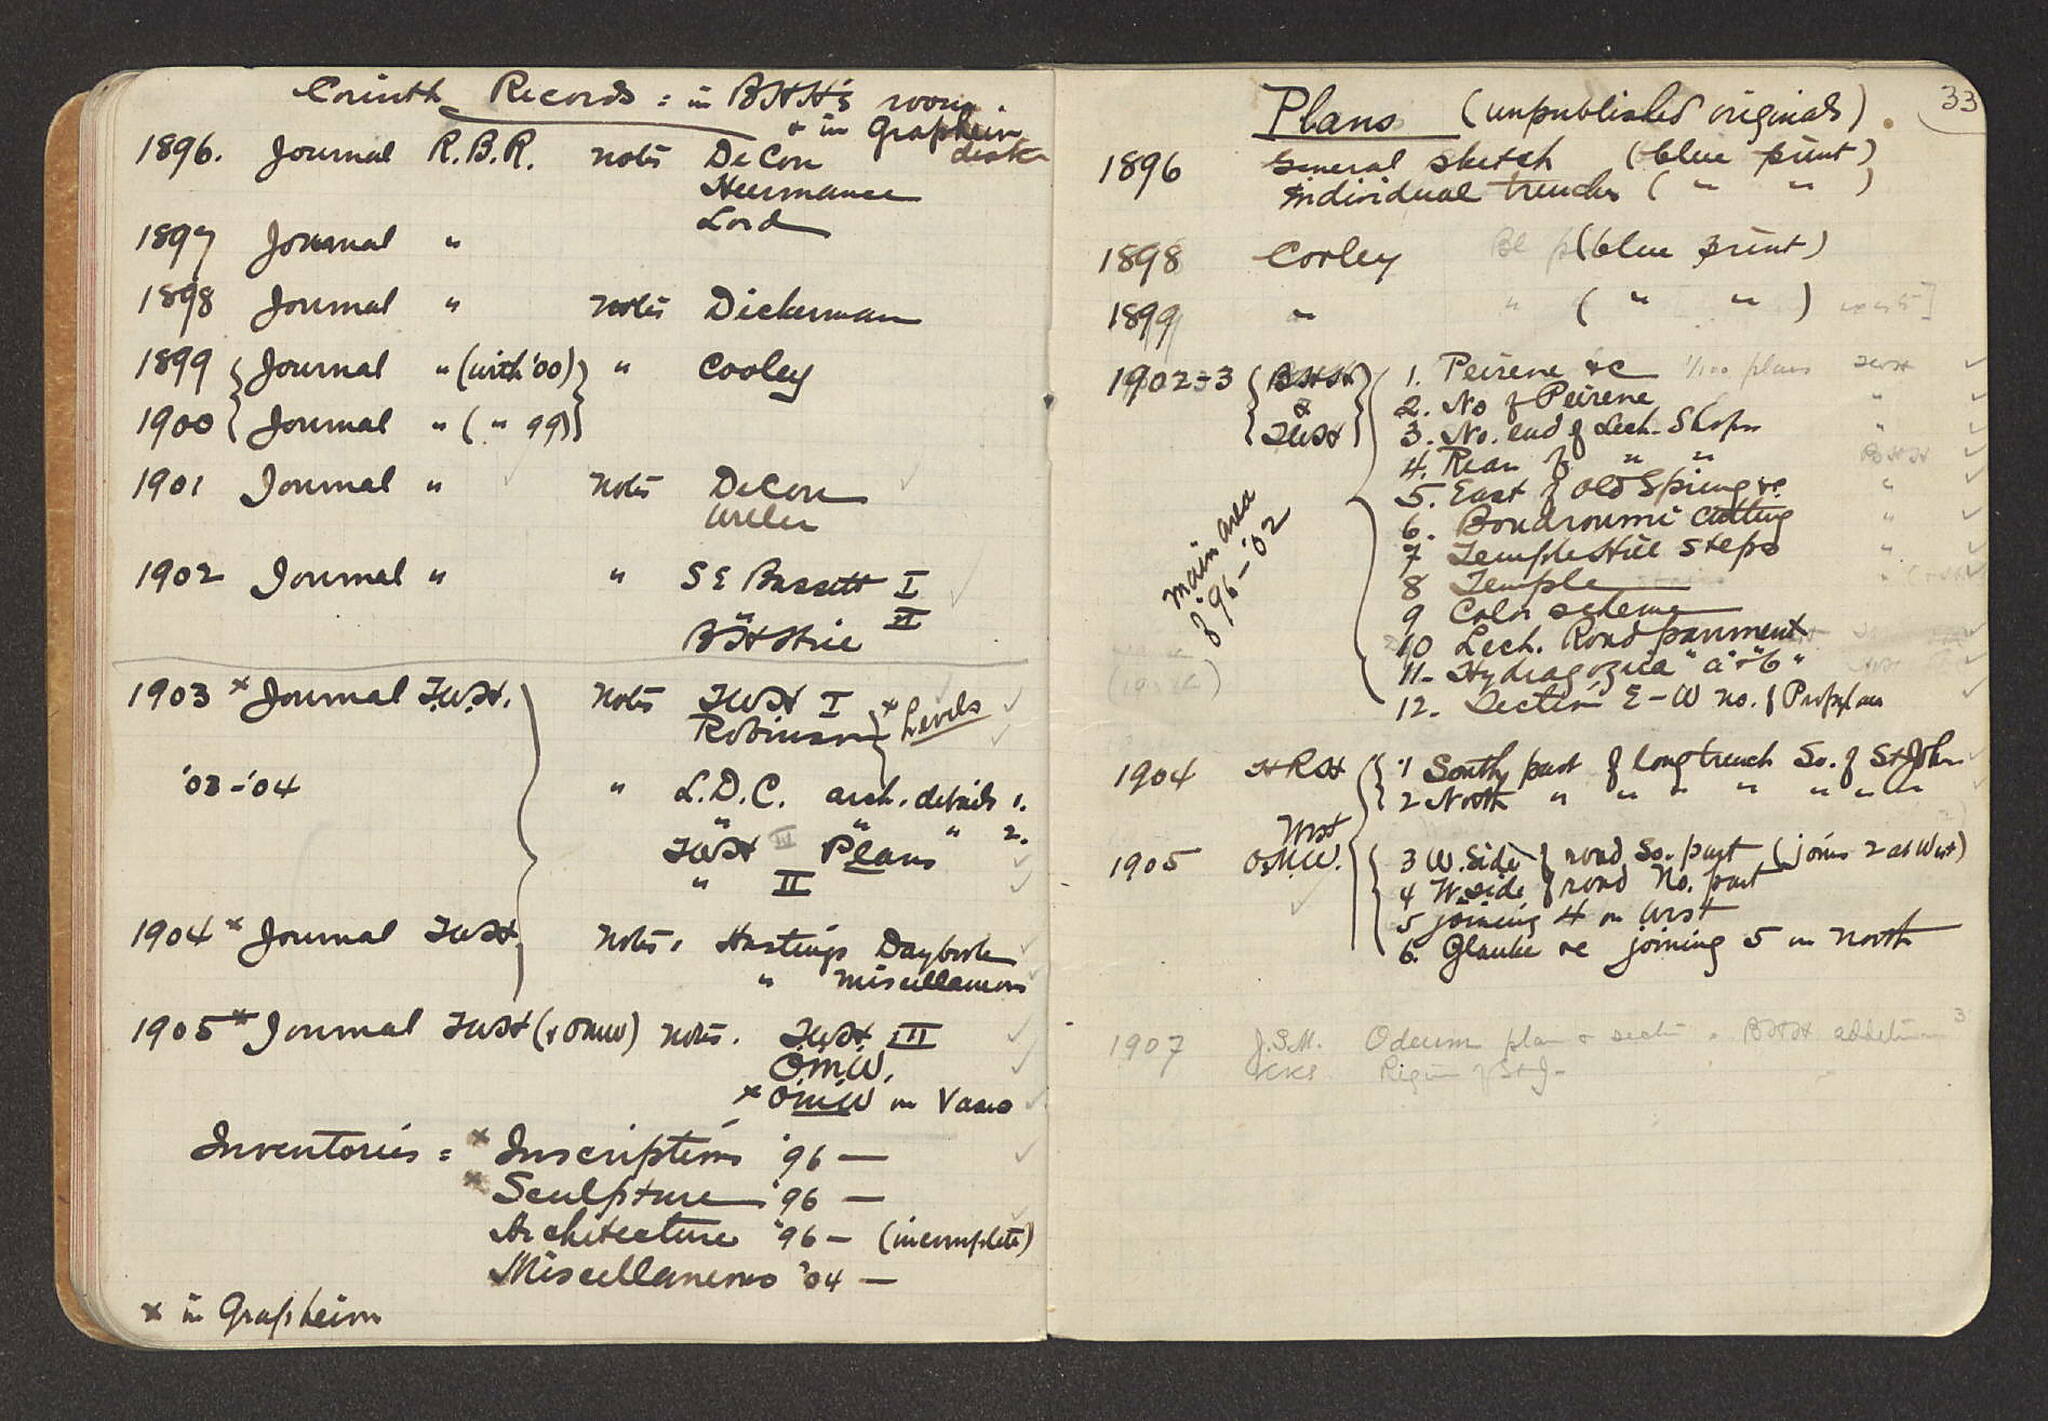 Corinth Records : in BHH's room.
+ in Grapheion desk
1896. Journal R.B.R. notes DeCou
Heermance
Lord
1897 Journal "
1898 Journal " notes Dickerman
1899 Journal " (with '00) " Cooley
1900 Journal " ( " 99)
1901 Journal " notes DeCou
Weller
1902 Journal " " S E Bassett I
" II
BH Hill
1903 x Journal T.W.H. notes TWH I
Robinson x Levels
'03-'04 " L.D.C. arch. details 1.
" " " 2.
TWH III Plans
" II
1904 x Journal TWH notes. Hastings Daybook
" miscellaneous
1905 x Journal TWH (+ OMW) notes. TWH. III
O.M.W.
x OMW on Vases
Inventories = x Inscriptions '96 —
x Sculpture '96 —
Architecture '96 — (incomplete)
Miscellaneous '04 —
x in Grapheion
33
Plans (unpublished originals).
1896 General sketch (blue print)
Individual trenches ( " " )
1898 Cooley (blue print)
1899 " " ( " " )
1902-3 { BHH & TWH } 1. Peirene &c 1/100 plans TWH
2. No of Peirene "
3. No. end of Lech. Shops "
4. Rear of " " BHH
5. East of Old Spring &c. "
main area of '96-'02
6. Boudroumi cutting "
7 Temple Hill steps "
8 Temple "
9 Color scheme
10 Lech. Road pavement
11. Hydragogeia "a" + "b"
12. Section E-W no. of Propylaea
1904 HRH 1 South part of long trench So. of St John
2 North " " " " " " "
1905 WH O.M.W. 3 W. Side } road So. part (joins 2 at West)
4 W. side } road No. part
5 joining 4 on West
6. Glauke &c joining 5 on north
1907 J.S.M. Odeum plan + section. BHH additions
KKS Region of St J.